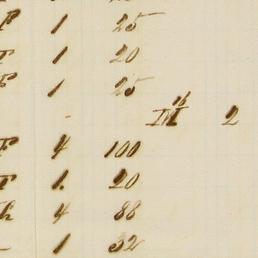 F 1 25
F 1 20
F 1 25
2
F 4 100
F 1. 20
h 4 88
1 32